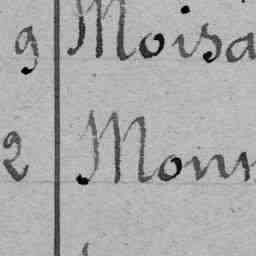 9 Moisa
2 Monn